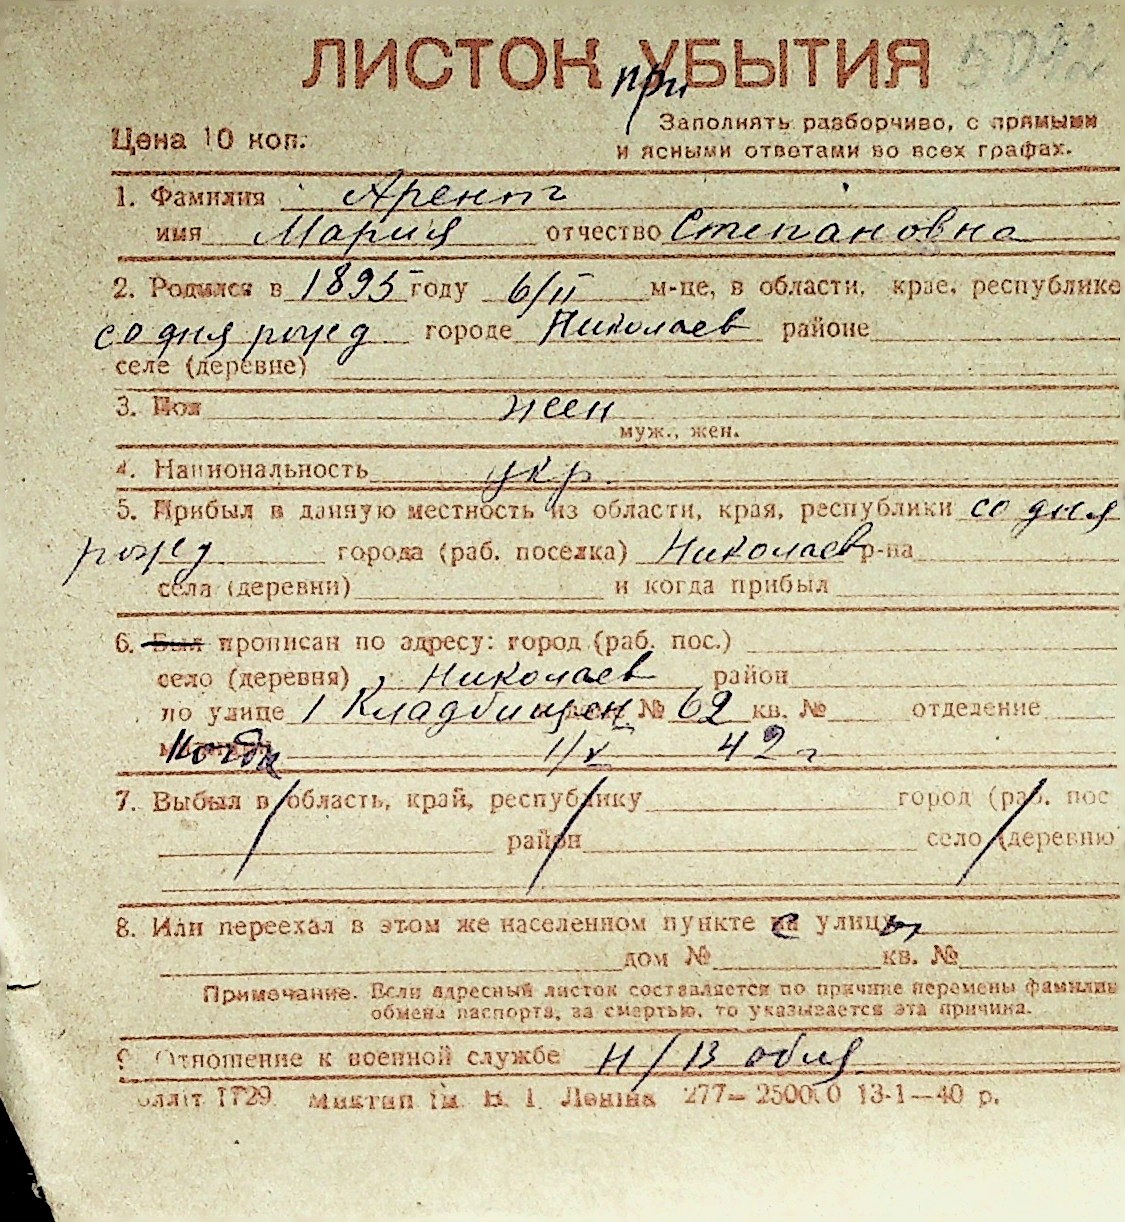 ЛИСТОК УБЫТИЯ
при
Цена 10 коп.
Заполнять разборчиво, с прямыми
и ясными ответами во всех графах.
1. Фамилия Арент
имя Мария отчество Степановна
2. Родился в 1895 году 6/II м-це, в области, крае, республике
со дня рожд городе Николаев районе
селе (деревне)
3. Пол жен
муж., жен.
4. Национальность укр.
5. Прибыл в данную местность из области, края, республики со дня
рожд города (раб. поселка) Николаев р-на
села (деревни) и когда прибыл
6. Был прописан по адресу: город (раб. пос.)
село (деревня) Николаев район
по улице 1 Кладбищен № 62 кв. № отделение
Когда 1/X 42 г
7. Выбыл в область, край, республику город (раб. пос
район село (деревню
8. Или переехал в этом же населенном пункте с улицы
дом № кв. №
Примечание. Если адресный листок составляется по причине перемены фамилии
обмена паспорта, за смертью, то указывается эта причина.
9 Отношение к военной службе н/в обяз
1729 Миктип ім. В. І. Леніна 277— 250000 13-1—40 р.